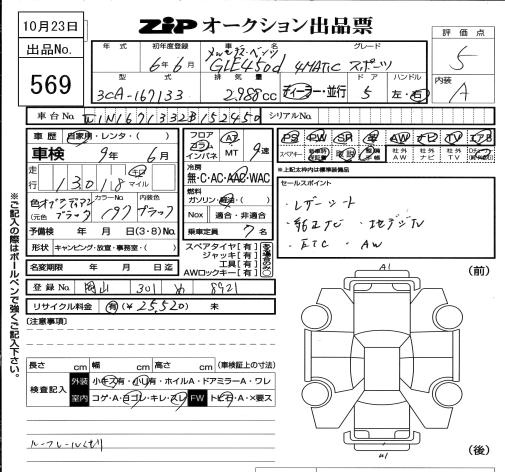 10月23日
ZIP オークション出品票
評価点
5
内装
A
出品No.
569
年式 初年度登録 車名 グレード
6年6月 メルセデス・ベンツ GLE450d 4MATIC スポーツ
型式 排気量 ドア ハンドル
3CA-167133 2,988cc ディーラー・並行 5 左・右
車台No. W1N1671332B152450 シリアルNo.
車歴 自家用・レンタ・( )
車検 9年 6月
走行 13,018 マイル
色 オブシディアンブラック カラーNo. 197 内装色 ブラック
(元色
予備検 年 月 日(3・8)No.
形状 キャンピング・放宣・事務室・( )
名変期限 年 月 日迄
フロア コラム インパネ AT MT 9速
冷房 無・C・AC・AAC・WAC
燃料 ガソリン・軽油・( )
Nox 適合・非適合
乗車定員 7名
スペアタイヤ【有】
ジャッキ【有】
工具【有】
AWロックキー【有】
PS PW SR 革 AW ナビ TV エアB
スペアキー 保証書 取説 手帳 社外AW 社外ナビ 社外TV
※上記太枠内は標準装備品
セールスポイント
・レザーシート
・純正ナビ ・地デジTV
・ETC ・AW
登録No. 岡山 301 め 8921
リサイクル料金 有(¥25,520) 未
(注意事項)
長さ cm 幅 cm 高さ cm (車検証上の寸法)
検査記入 外装 小キズ有・小凹有・ホイルA・ドアミラーA・ワレ
室内 コゲ・A・ヨゴレ・キレ・スレ FW トビ石・A・×要ス
ルーフレールキズ
※ご記入の際はボールペンで強くご記入下さい。
(前)
A1
(後)